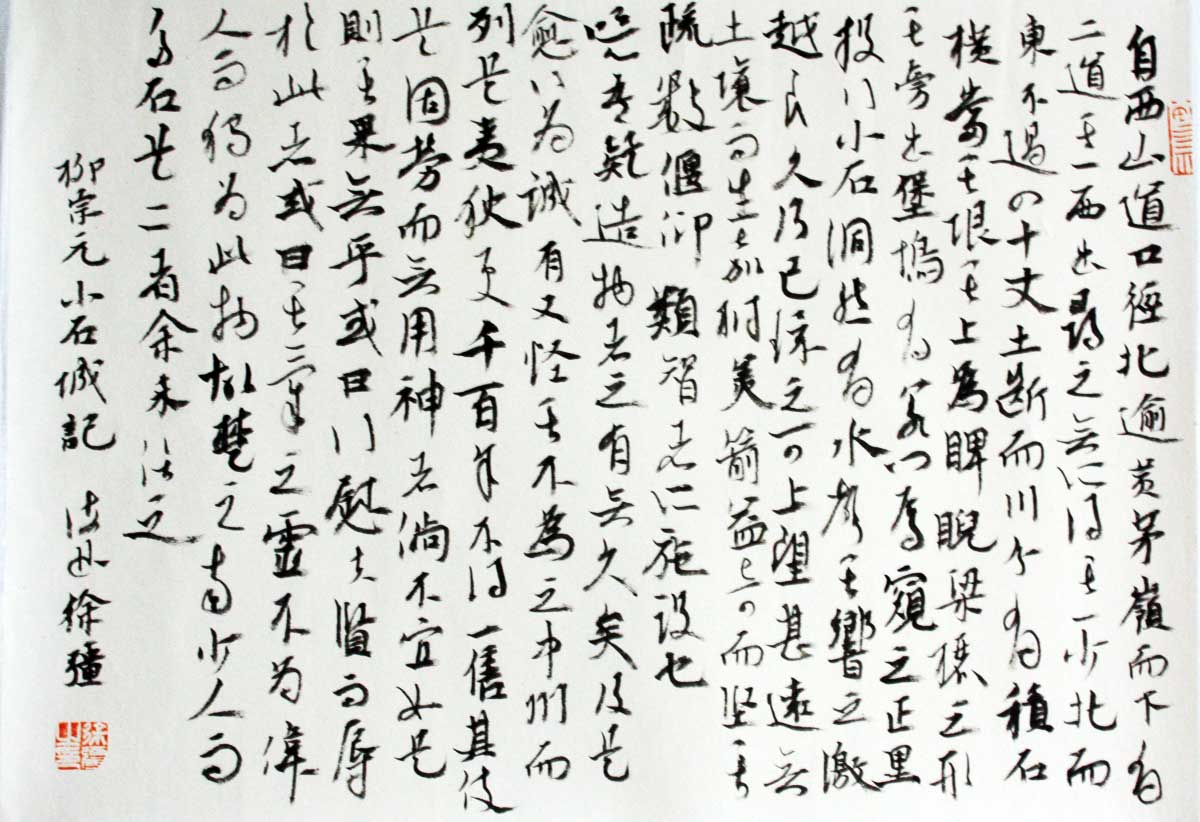 自西山道口徑北逾黃茅嶺而下有
二道其一西出尋之無所得其一少北而
東不過四十丈土斷而川分有積石
橫當其垠其上為睥睨梁欐之形
其旁出堡塢有若門焉窺之正黑
投以小石洞然有水聲其響之激
越良久乃已環之可上望甚遠無
土壤而生嘉樹美箭益奇而堅其
疏數偃仰類智者所施設也
噫吾疑造物者之有無久矣及是
愈以為誠有又怪其不為之中州而
列是夷狄更千百年不得一售其伎
是固勞而無用神者倘不宜如是
則其果無乎或曰以慰夫賢而辱
於此者或曰其氣之靈不為偉
人而獨為此物故楚之南少人而
多石是二者余未信之
柳宗元小石城記 徐疆